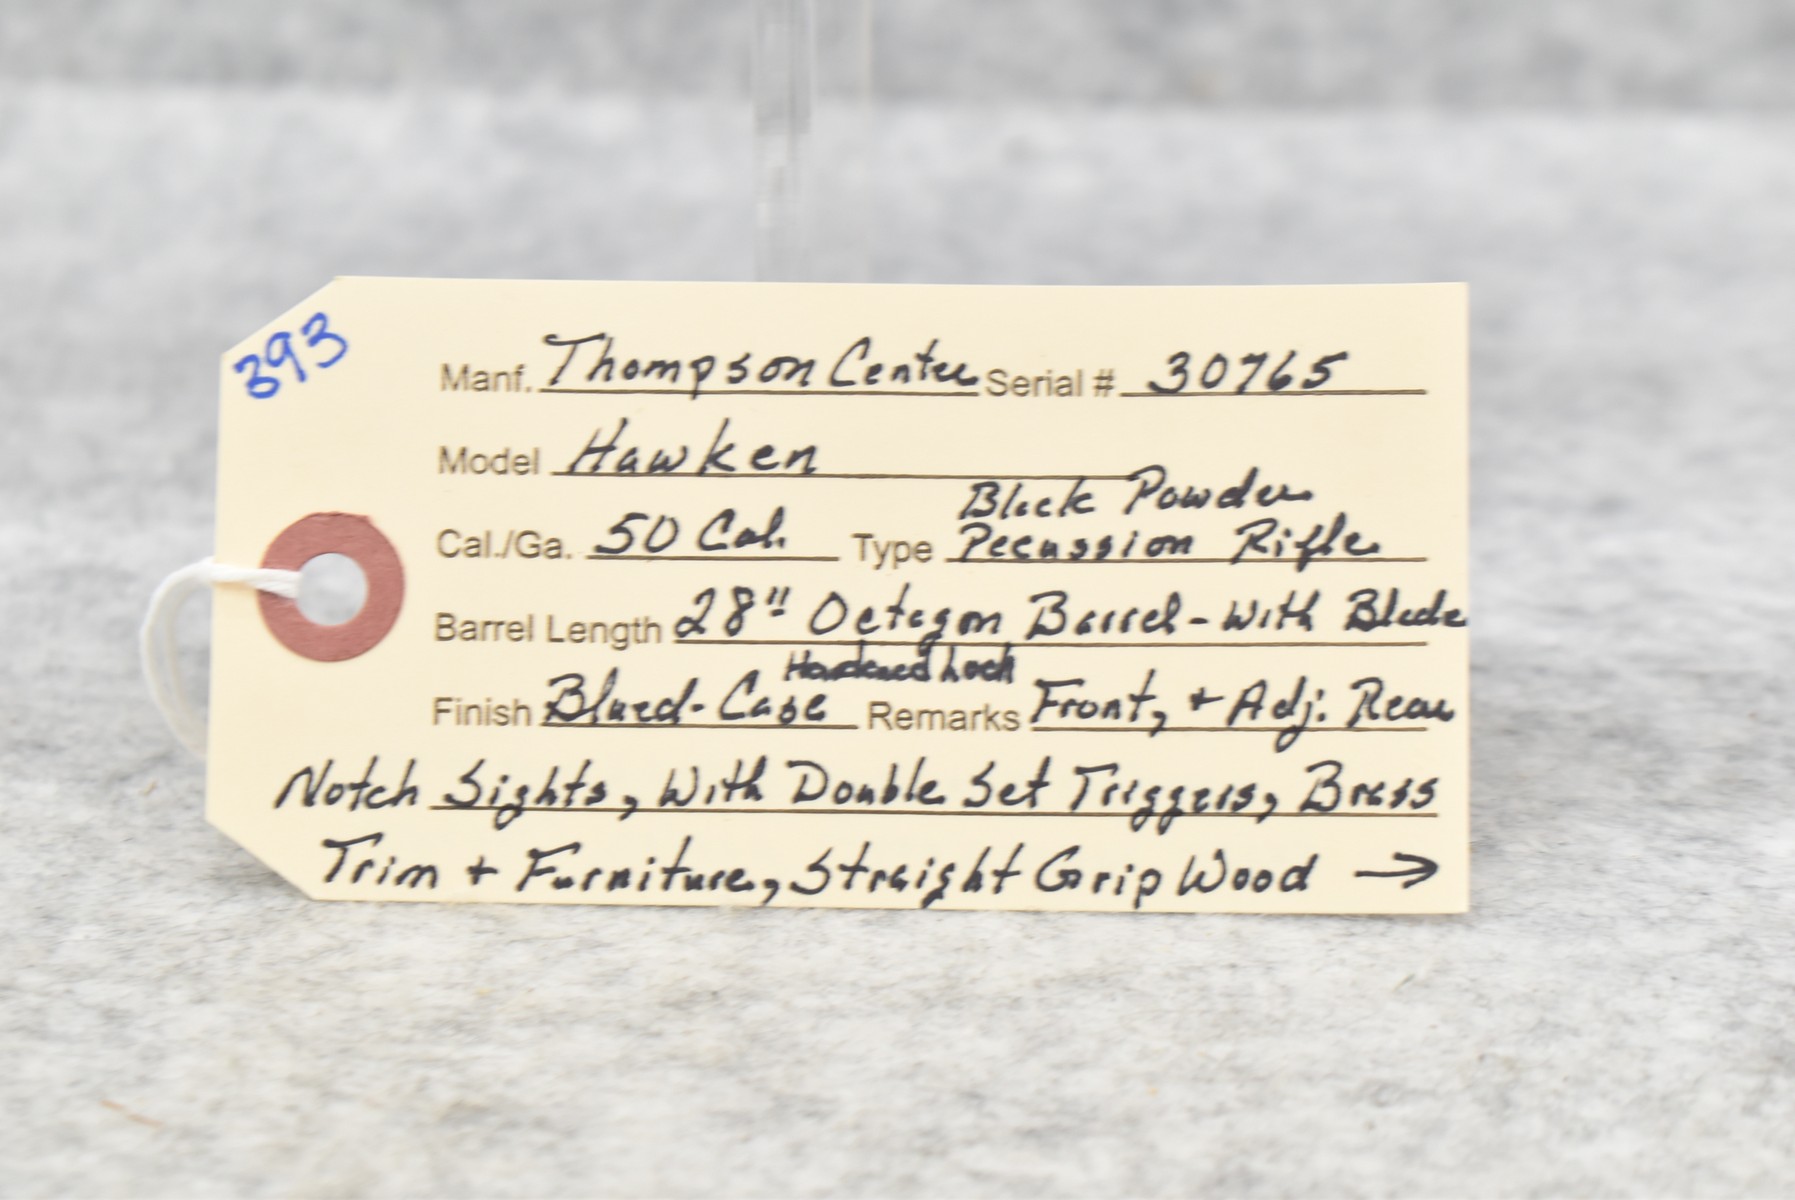 393
Manf. Thompson Center Serial # 30765
Model Hawken
Black Powder
Cal./Ga. 50 Cal. Type Pecussion Rifle
Barrel Length 28" Octagon Barrel - With Blade
Hardened Lock
Finish Blued - Case Remarks Front, + Adj. Rear
Notch Sights, With Double Set Triggers, Brass
Trim + Furniture, Straight Grip Wood →